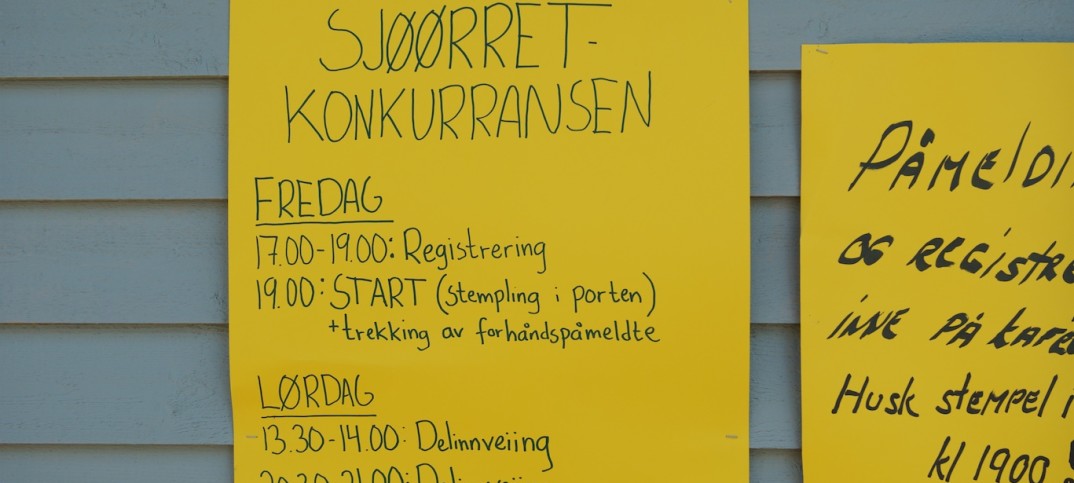 SJØØRRET-
KONKURRANSEN
FREDAG
17.00-19.00: Registrering
19.00: START (stempling i porten)
+trekking av forhåndspåmeldte
LØRDAG
13.30-14.00: Delinnveiing
PÅMELDI
OG REGISTRE
INNE PÅ KAFE
Husk stempel i
kl 1900